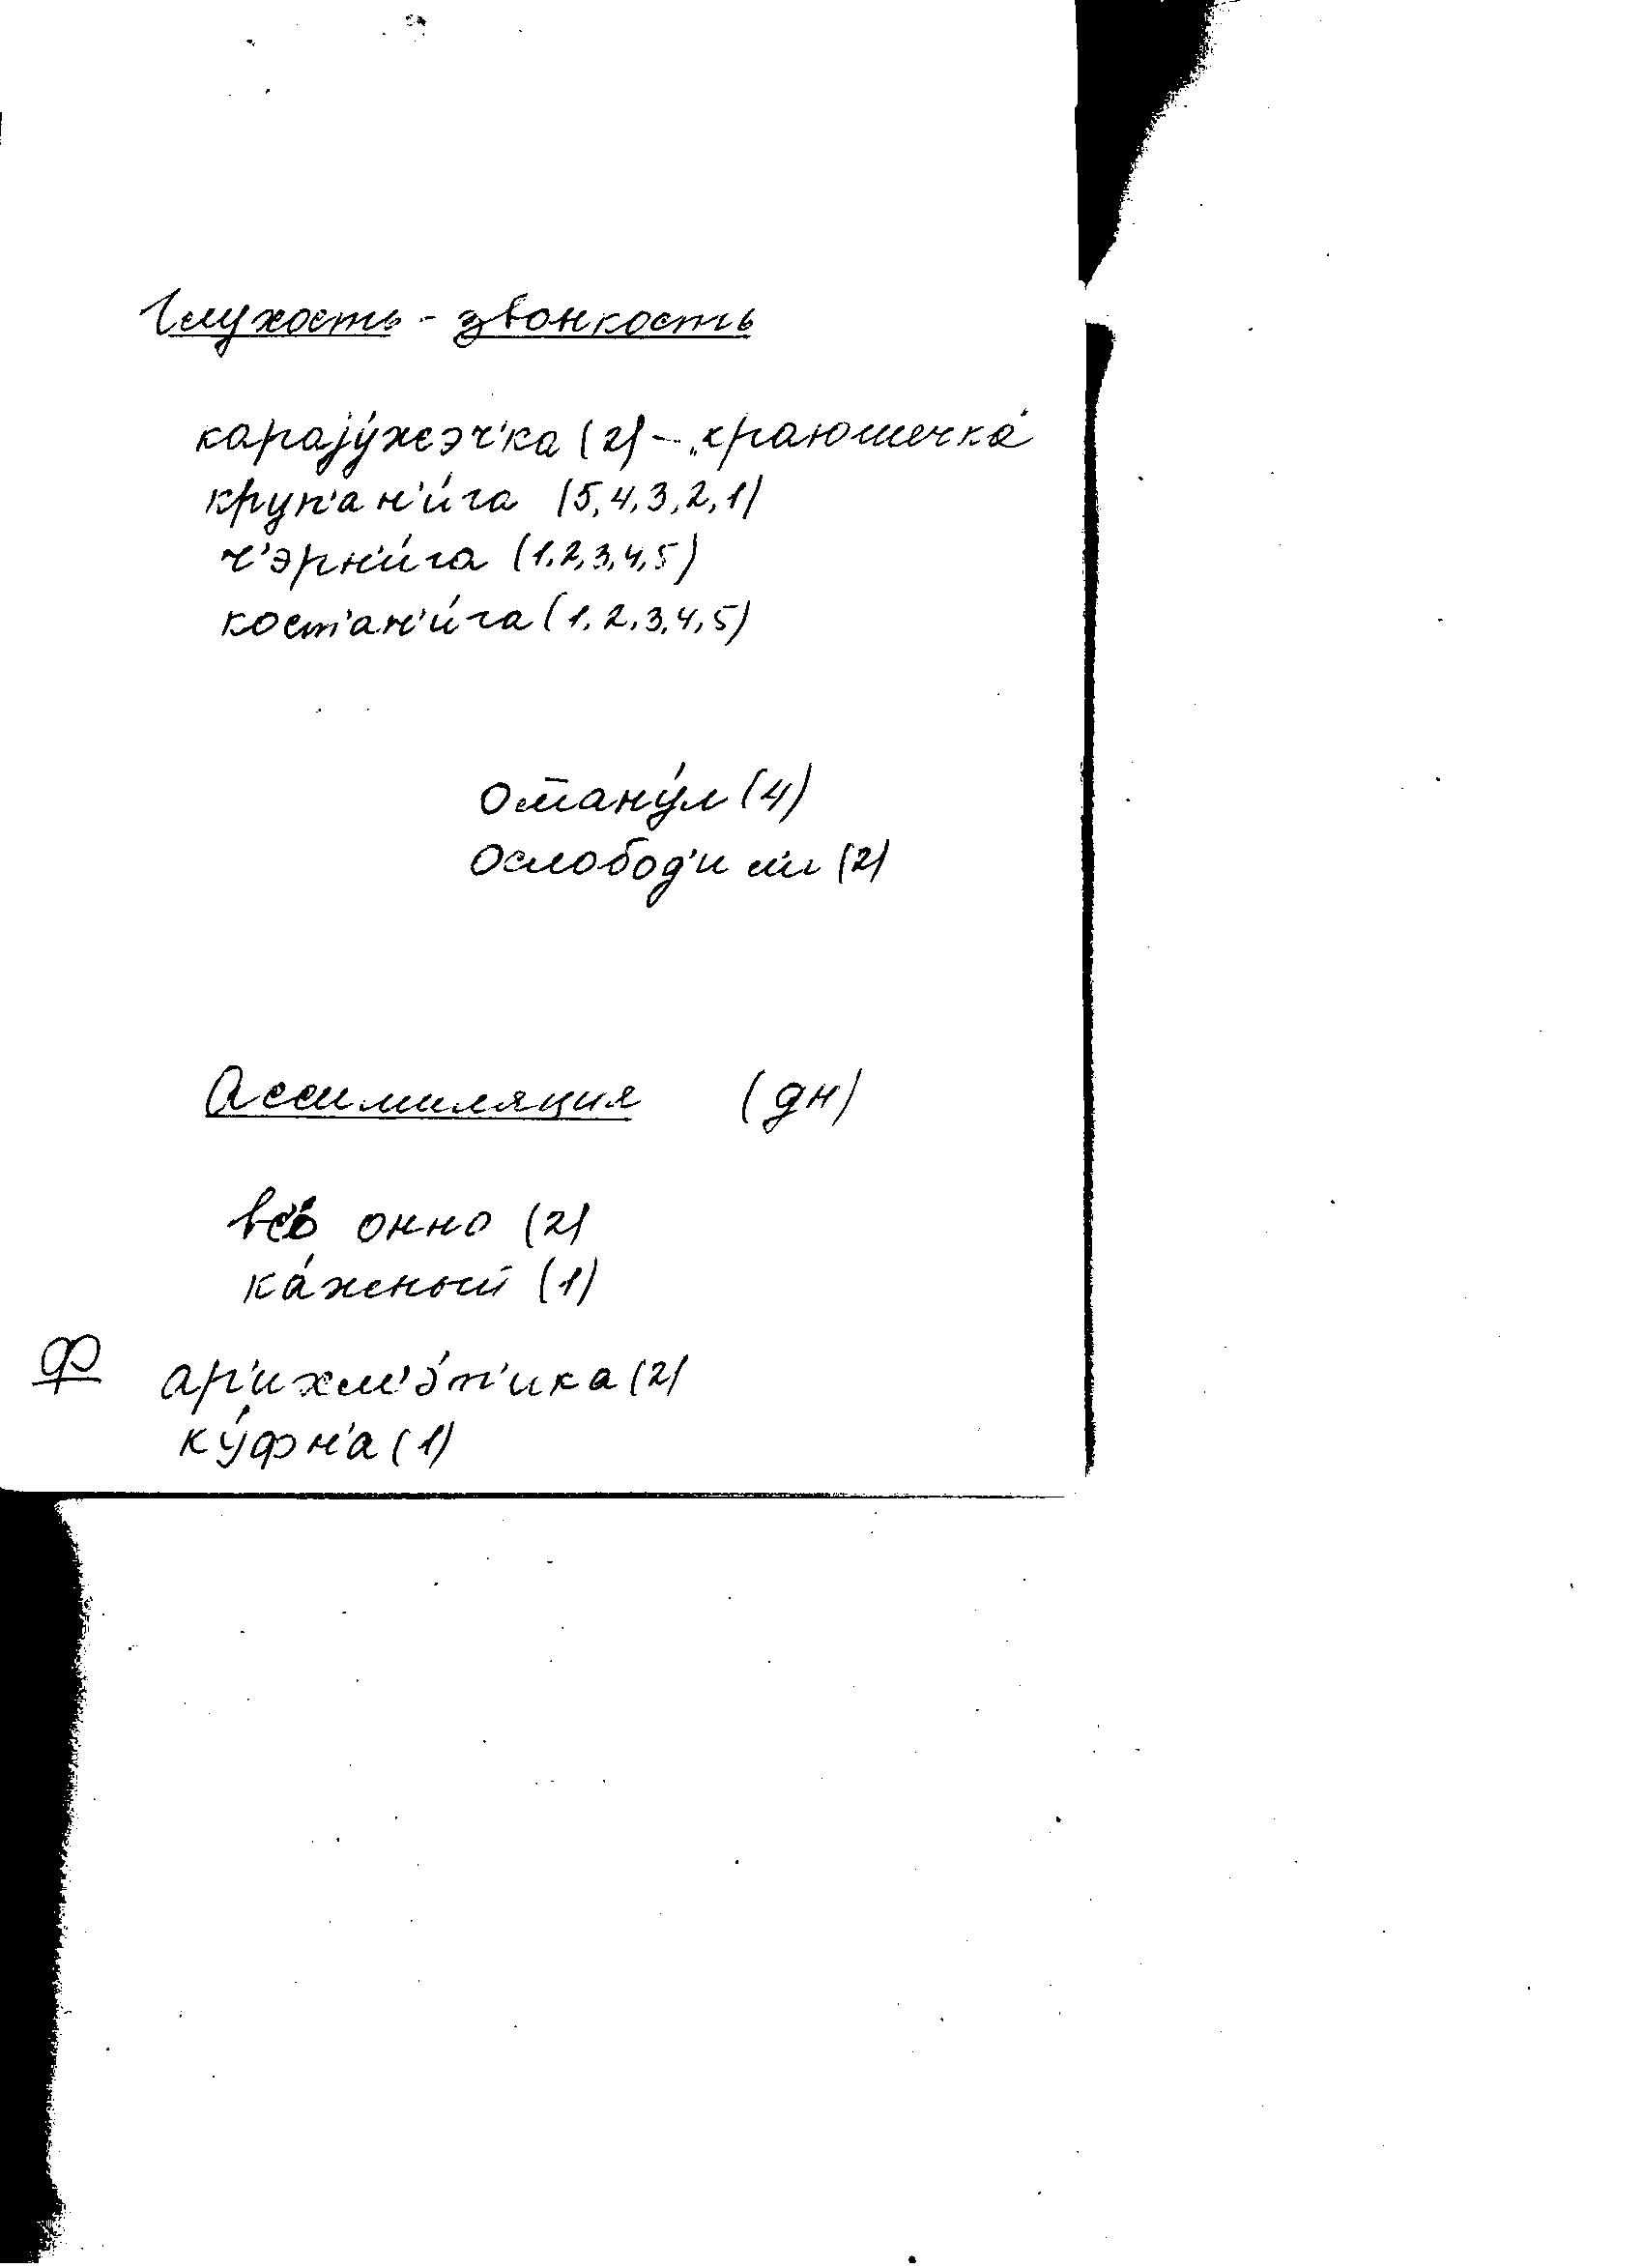 Глухость - звонкость
карајýжэч'ка (2) – „краюшечка"
круп'ан'и́га (5,4,3,2,1)
ч'эрн'и́га (1,2,3,4,5)
кост'ан'и́га (1,2,3,4,5)
от̄ану́л (4)
ослобод'и л'и (2)
Ассимиляция (дн)
всё онно (2)
ка́жный (1)
Ф ар'ихм'э́т'ика (2)
ку́фн'а (1)